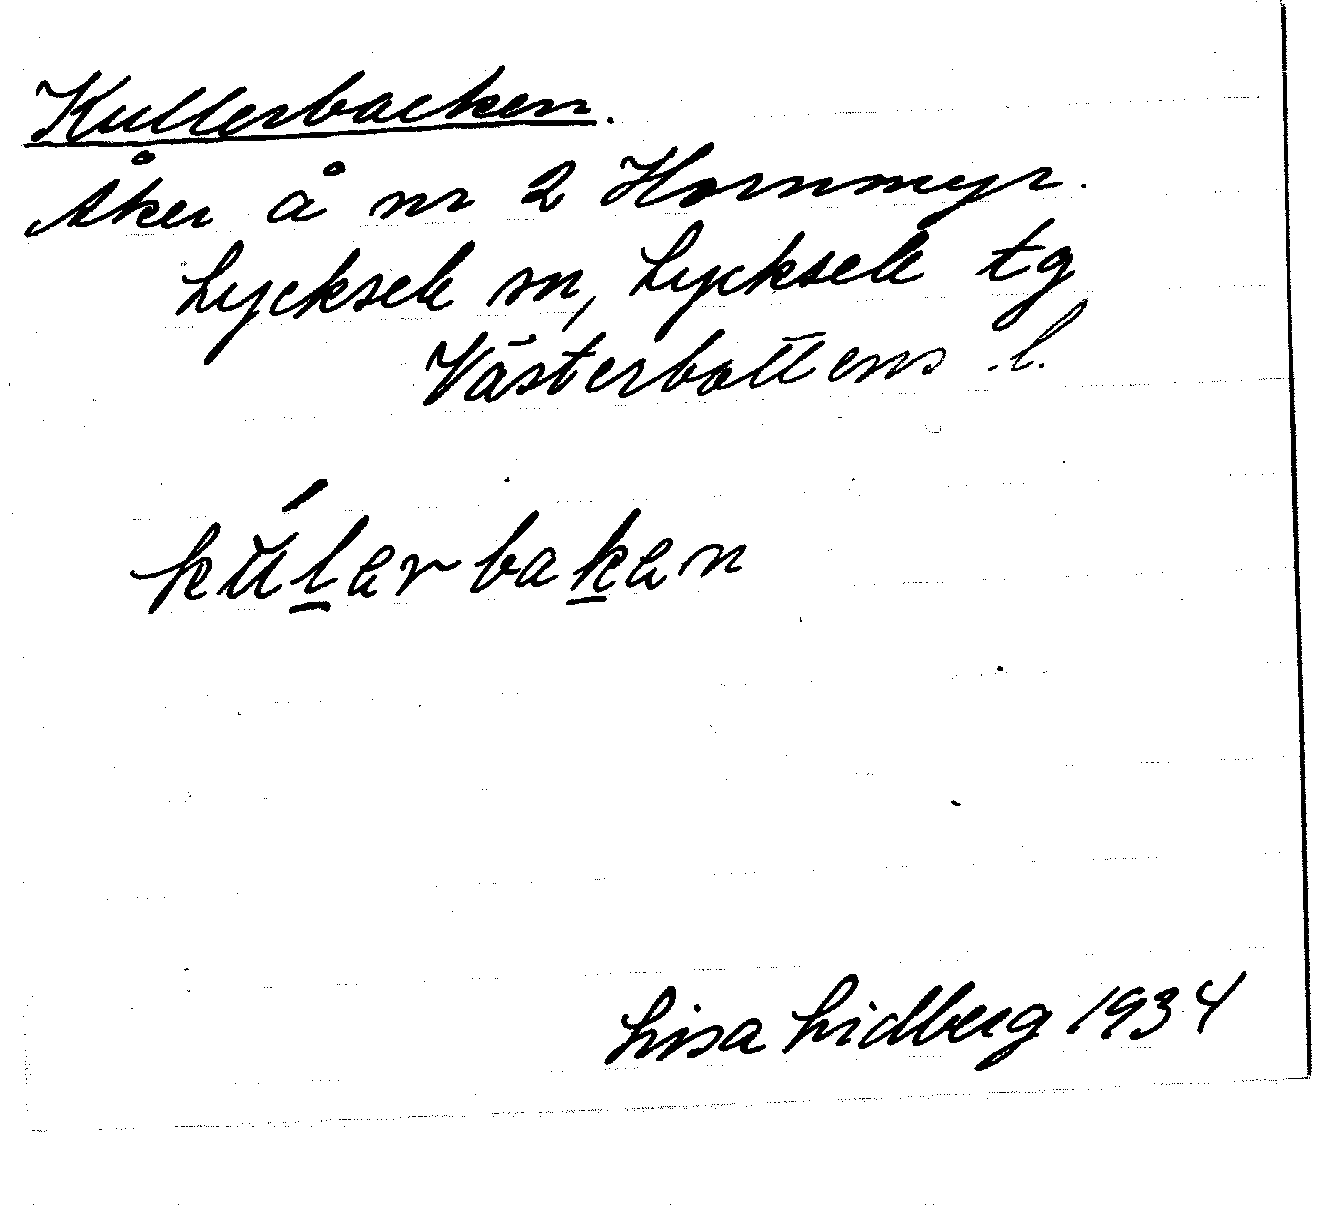 Kullerbacken.
Åker å nr 2 Hornmyr.
Lycksele sn, Lycksele tg
Västerbottens l.
kúl̲erbak̲en
Lisa Lidberg 1934